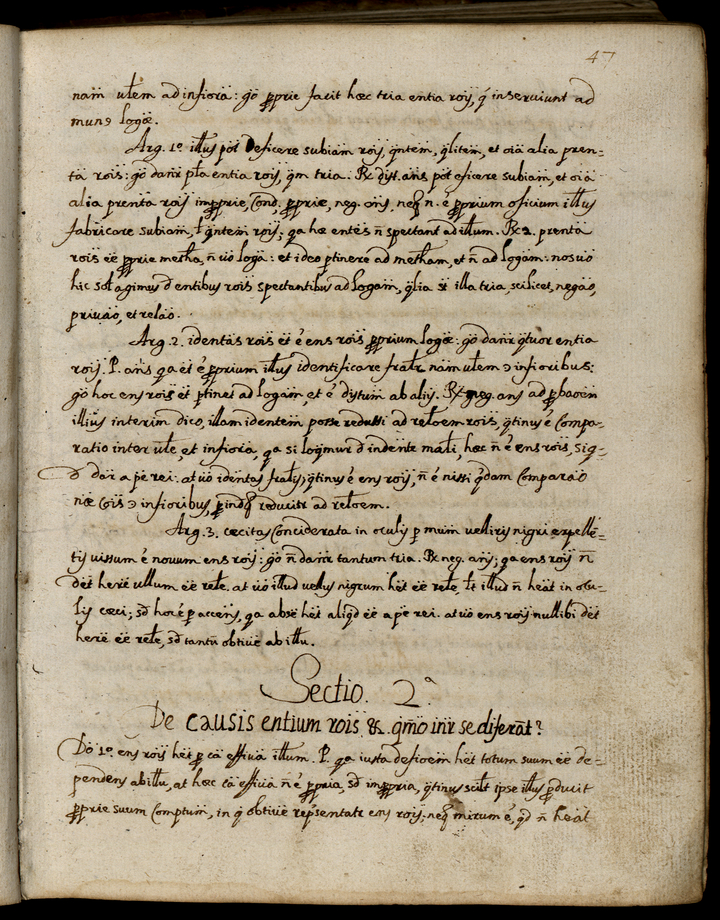 47
nam̃ ułem ad infiora: g̃o p̱prie facit hæc tria entia roĩs, q̃ inserviunt ad
munꝯ logæ.
Arg. 1º illũs põt deficere subiam̃ roĩs, q̃ntem̃, q̃litem̃, et oĩa alia pren=
ta roĩs: g̃o dañr p̃la entia roĩs, q̃m tria. R̃ dist. añs põt eficere subiam̃, et oĩa
alia prenta roĩs imp̱prie, Con̄d. p̱prie, neg. añs, neq̃ n. é p̱prium oficium illũs
fabricare subiam̃, ł q̃ntem̃ roĩs; q̃a hæ enteš ñ spectant ad illum. R̃ 2. prenta
roĩs eẽ p̱prie metħa, ñ ũo loga: et ideo ptinere ad metħam, et ñ ad logam: nos ũo
hic sol agimus d̃ entibus roĩs spectantibus ad logam̃, q̃lia st̃ illa tria, scilicet, negão,
privão, et relão.
Arg. 2. identãs roĩs ẽt é ens roĩs p̱prium logæ: g̃o dañr q̃tuor entia
roĩs. P. añs q̃a ẽt é p̱prium illũs identificare frałr nam̃ ułem ꝯ infioribus:
g̃o hoc ens roĩs ẽt ptinet ad logam̃, et é dis̃tum ab alijs. R̃ neg. ans ad p̱baõem
illius interim dico, illam identem̃ posse redussi ad reloẽm roĩs, q̃tinus é Compa=
ratio inter uł̃e, et infiora, q̃a si loq̃mur d̃ indente małi, hæc ñ é ens roĩs, sig=
d̃ dar̃ a p̃e rei. at ũo identas frałis, q̃tinus é ens roĩs, ñ é nissi q̃dam Comparão
næ Cois̃ ꝯ infioribus, p̱indeq̃ reducitr ad reloẽm.
Arg. 3. cæcitas Conciderata in oculis p mum̃ velleris nigri expellẽ=
tis vissum é novum ens roĩs: g̃o ñ dañr tantum tria. R̃ neg. añs; q̃a ens roĩs ñ
dẽt herẽ ullum eẽ rełe. at ũo illud vellus nigrum hẽt eẽ rełe, łt illud ñ heãt in ocu=
lis cæci; sd̃ hoc é p acceñs, q̃a absẽ hẽt aliq̃d eẽ a p̃e rei. at ũo ens roĩs nullibi dẽt
herẽ eẽ rełe, sd̃ tantũ obtivẽ ab illũ.
Sectio. 2ª
De causis entium roĩs, & q̃mo inr̃ se diferãt?
Dõ 1º ens roĩs hẽt p cã effivã illum. P. q̃a iusta defioem̃ hẽt totum suum eẽ de=
pendens ab illũ, at hæc cã effivã ñ é p̱pria, sd̃ imp̱pria, q̃tinus scilt̃ ipse illũs p̱ducit
p̱prie suum Comptum̃, in q̃ obtivẽ rep̃sentatr ens roĩs; neq̃ mirum é, q̃d ñ heãt